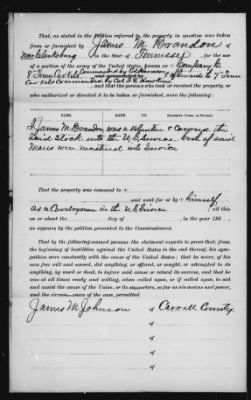 That, as stated in the Petition referred to, the property in question was
taken from or furnished by James M Brandon of
near Clarksburg in the State of Tennessee, for the use
of a portion of the army of the United States, known as Company G
8th Tenn Cav Vols Commanded by
Cav Vols Commanded by Col S R Hawkins afterwards to 7th Tenn
and that the persons who took or received the property, or
who authorized or directed it to be taken or furnished, were the following:
NAME.
RANK.
I James M. Brandon, was a volunteer & carryed the
said Stock into the U.S. Service. both of said
Mares were mustered into Service
That the property was removed to
and used for or by himself
as a Cavalryman in the U.S. Service all this
on or about the day of in the year 186 ,
as appears by the petition presented to the Commissioners.
That by the following-named persons the claimant expects to prove that, from
the beginning of hostilities against the United States to the end thereof, his sym-
pathies were constantly with the cause of the United States; that he never, of his
own free will and accord, did anything, or offered, or sought, or attempted to do
anything, by word or deed, to injure said cause or retard its success, and that he
was at all times ready and willing, when called upon, or if called upon, to aid
and assist the cause of the Union, or its supporters, so far as his means and power,
and the circumstances of the case, permitted.
James M. Johnson of Carroll County
of
of
of
of